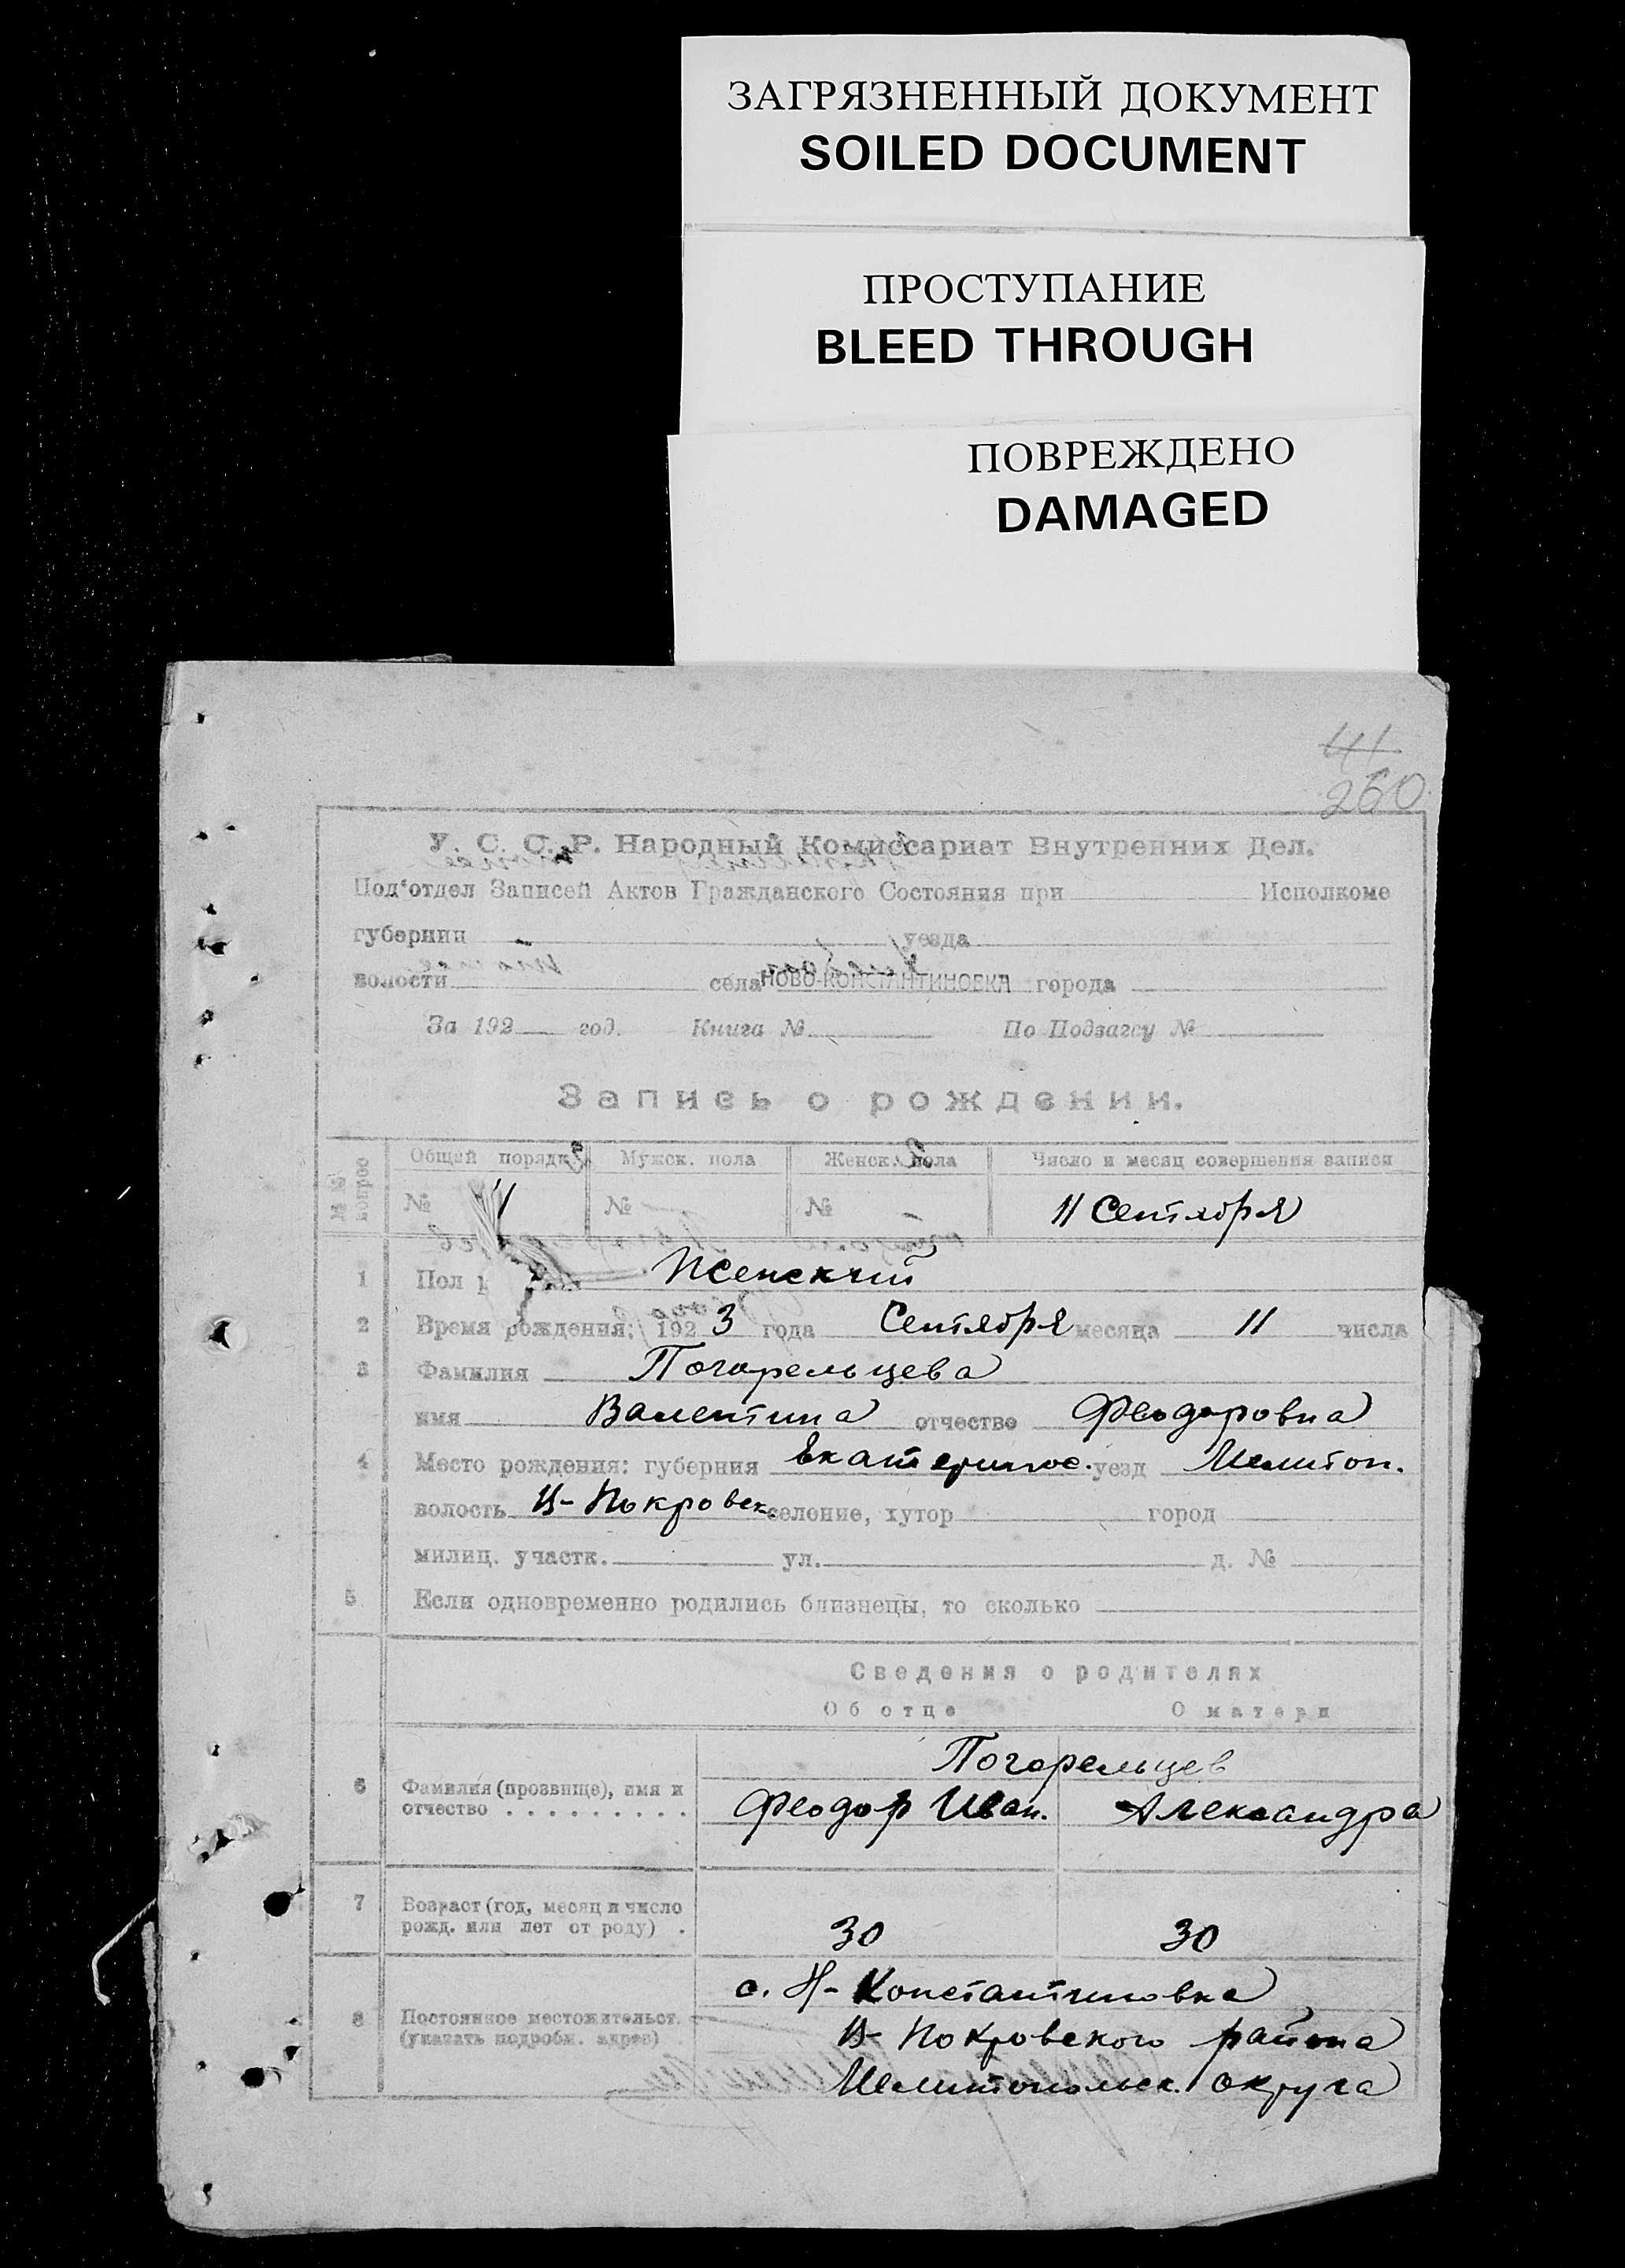 ЗАГРЯЗНЕННЫЙ ДОКУМЕНТ
SOILED DOCUMENT
ПРОСТУПАНИЕ
BLEED THROUGH
ПОВРЕЖДЕНО
DAMAGED
41
260
У. С. С. Р. Народный Комиссариат Внутренних Дел.
Под'отдел Записей Актов Гражданского Состояния при Исполкоме
губернии уезда
волости села НОВО-КОНСТАНТИНОВКА города
За 192 год. Книга № По Подзагсу №
Запись о рождении.
№№ вопрос
Общий порядк. Мужск. пола Женск. пола Число и месяц совершения записи
№ № — № — 11 Сентября
1 Пол Женский
2 Время рождения: 1923 года Сентября месяца 11 числа
3 Фамилия Погорельцева
имя Валентина отчество Феодоровна
4 Место рождения: губерния Екатеринос. уезд Мелитоп.
волость Ц-Покровск. селение, хутор город
милиц. участк. ул. д. №
5 Если одновременно родились близнецы, то сколько
Сведения о родителях
Об отце О матери
Погорельцев
6 Фамилия (прозвище), имя и
отчество . . . . . . . . . Феодор Иван. Александра
7 Возраст (год, месяц и число
рожд. или лет от роду) . 30 30
с. Н-Константиновка
8 Постоянное местожительст.
(указать подробн. адрес) Ц-Покровского района
Мелитопольск. округа